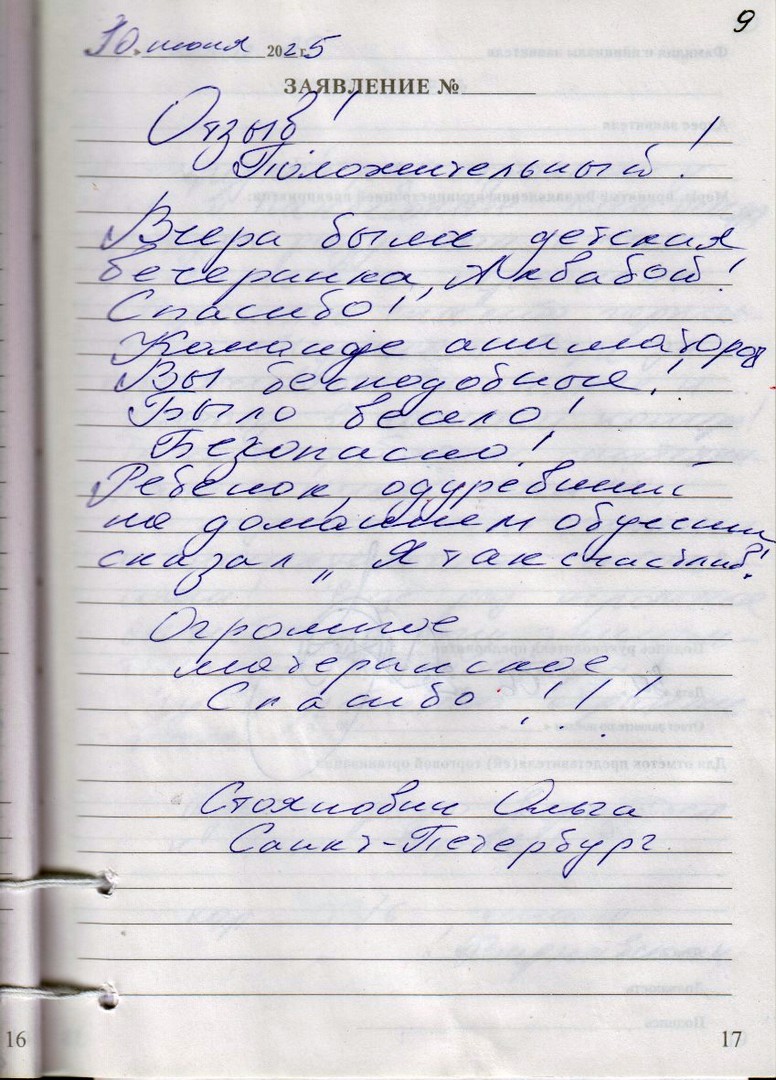 9
30 июня 2025
ЗАЯВЛЕНИЕ №
Отзыв!
Положительный!
Вчера была детская
вечеринка „Аквабой!
Спасибо!
Команде аниматоров
Вы бесподобные!
Было весело!
Безопасно!
Ребёнок, одуревший
на домашнем обучении
сказал „Я так счастлив!"
Огромное
материнское
Спасибо!!!
Стоянович Ольга
Санкт-Петербург
16
17